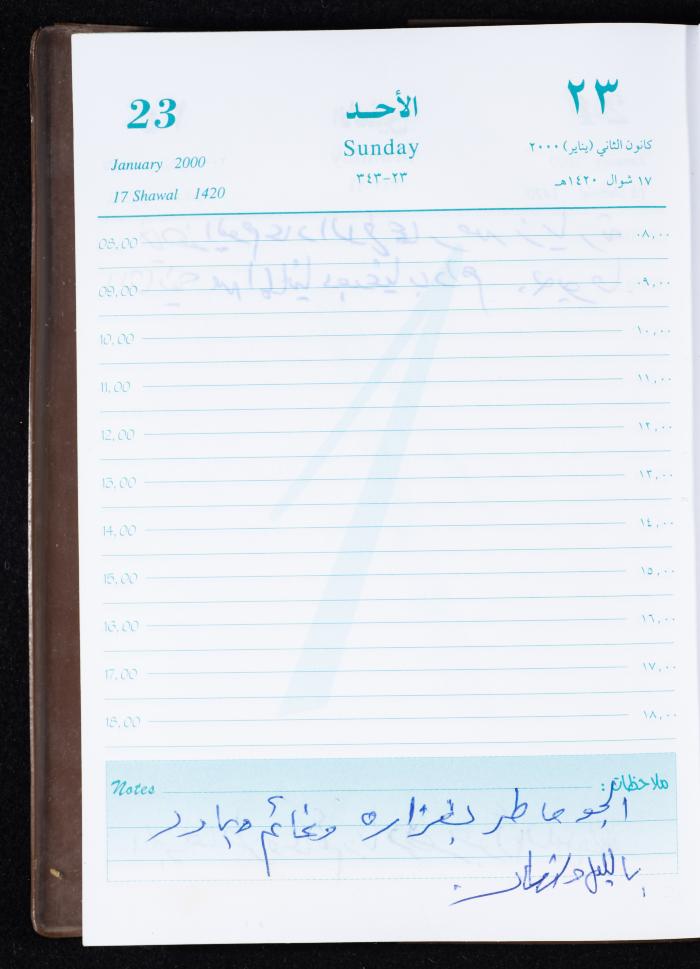 23
الأحـد
٢٣
Sunday
January 2000
كانون الثاني (يناير) ٢٠٠٠
17 Shawal 1420
٢٣-٣٤٣
١٧ شوال ١٤٢٠هـ
08,00 ٠٨,٠٠
09,00 ٠٩,٠٠
10,00 ١٠,٠٠
11,00 ١١,٠٠
12,00 ١٢,٠٠
13,00 ١٣,٠٠
14,00 ١٤,٠٠
15,00 ١٥,٠٠
16,00 ١٦,٠٠
17,00 ١٧,٠٠
18,00 ١٨,٠٠
Notes ملاحظات:
الجو ماطر بغزاره وغائم وبارد
بالليل والنهار.